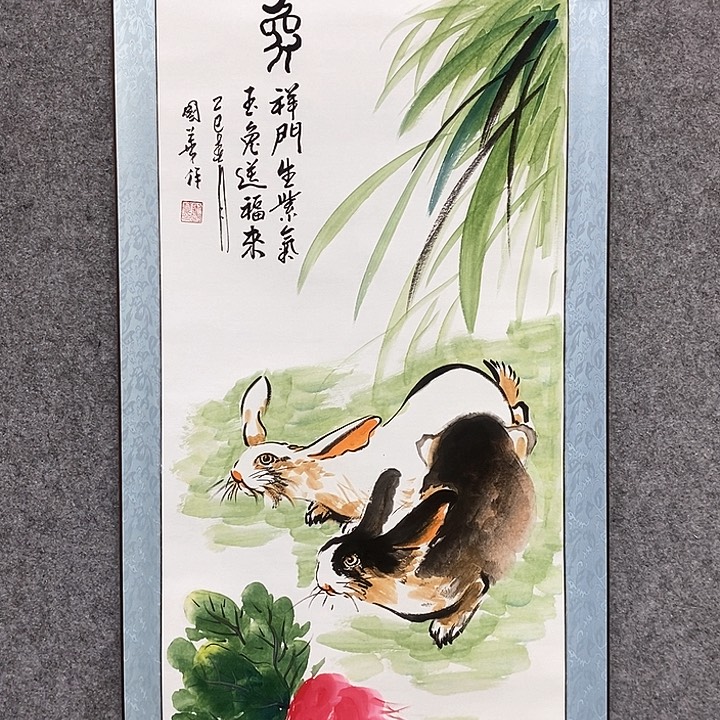 兔
祥門生紫氣
玉兔送福來
乙巳年
國華作